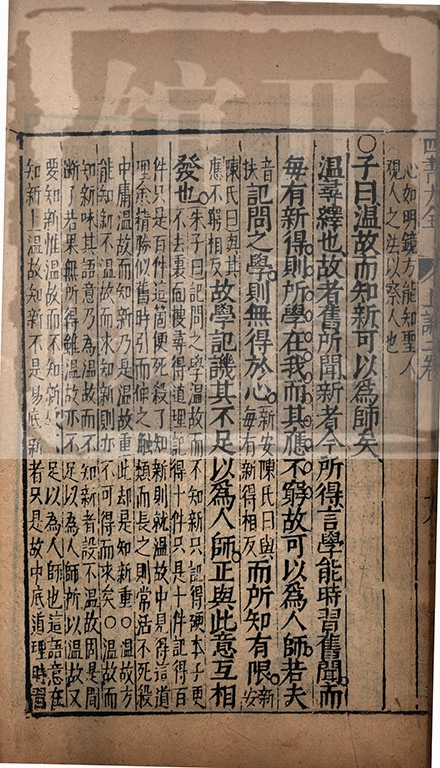 心如明鏡方能知聖人
觀人之法以察人也
○子曰温故而知新可以為師矣
温尋繹也故者舊所聞新者今所得言學能時習舊聞而
每有新得則所學在我而其應不窮故可以為人師若夫
記問之學則無得於心
新安陳氏曰與
每有新得相反
而所知有限
新安
陳氏曰與其
應不窮相反
故學記譏其不足以為人師正與此意互相
發也
朱子曰記問之學温故而不知新只記得硬本子更
不去裏面搜尋得道理記得十件只是十件記得百
件只是百件這箇便死殺了知新則就温故中見得這道
理愈精勝似舊時引而伸之觸類而長之則常活不死殺
中庸温故而知新乃是温故重此却是知新重○温故方
能知新不温故而求知新則亦不可得而求矣○温故而
知新味其語意乃為温故而不知新者設不温故固是間
斷了若果無所得雖温故亦不足以為人師所以温故又
要知新惟温故而不知新
足以為人師也這語意在
知新上温故知新不是易底新者只是故中底道理時習